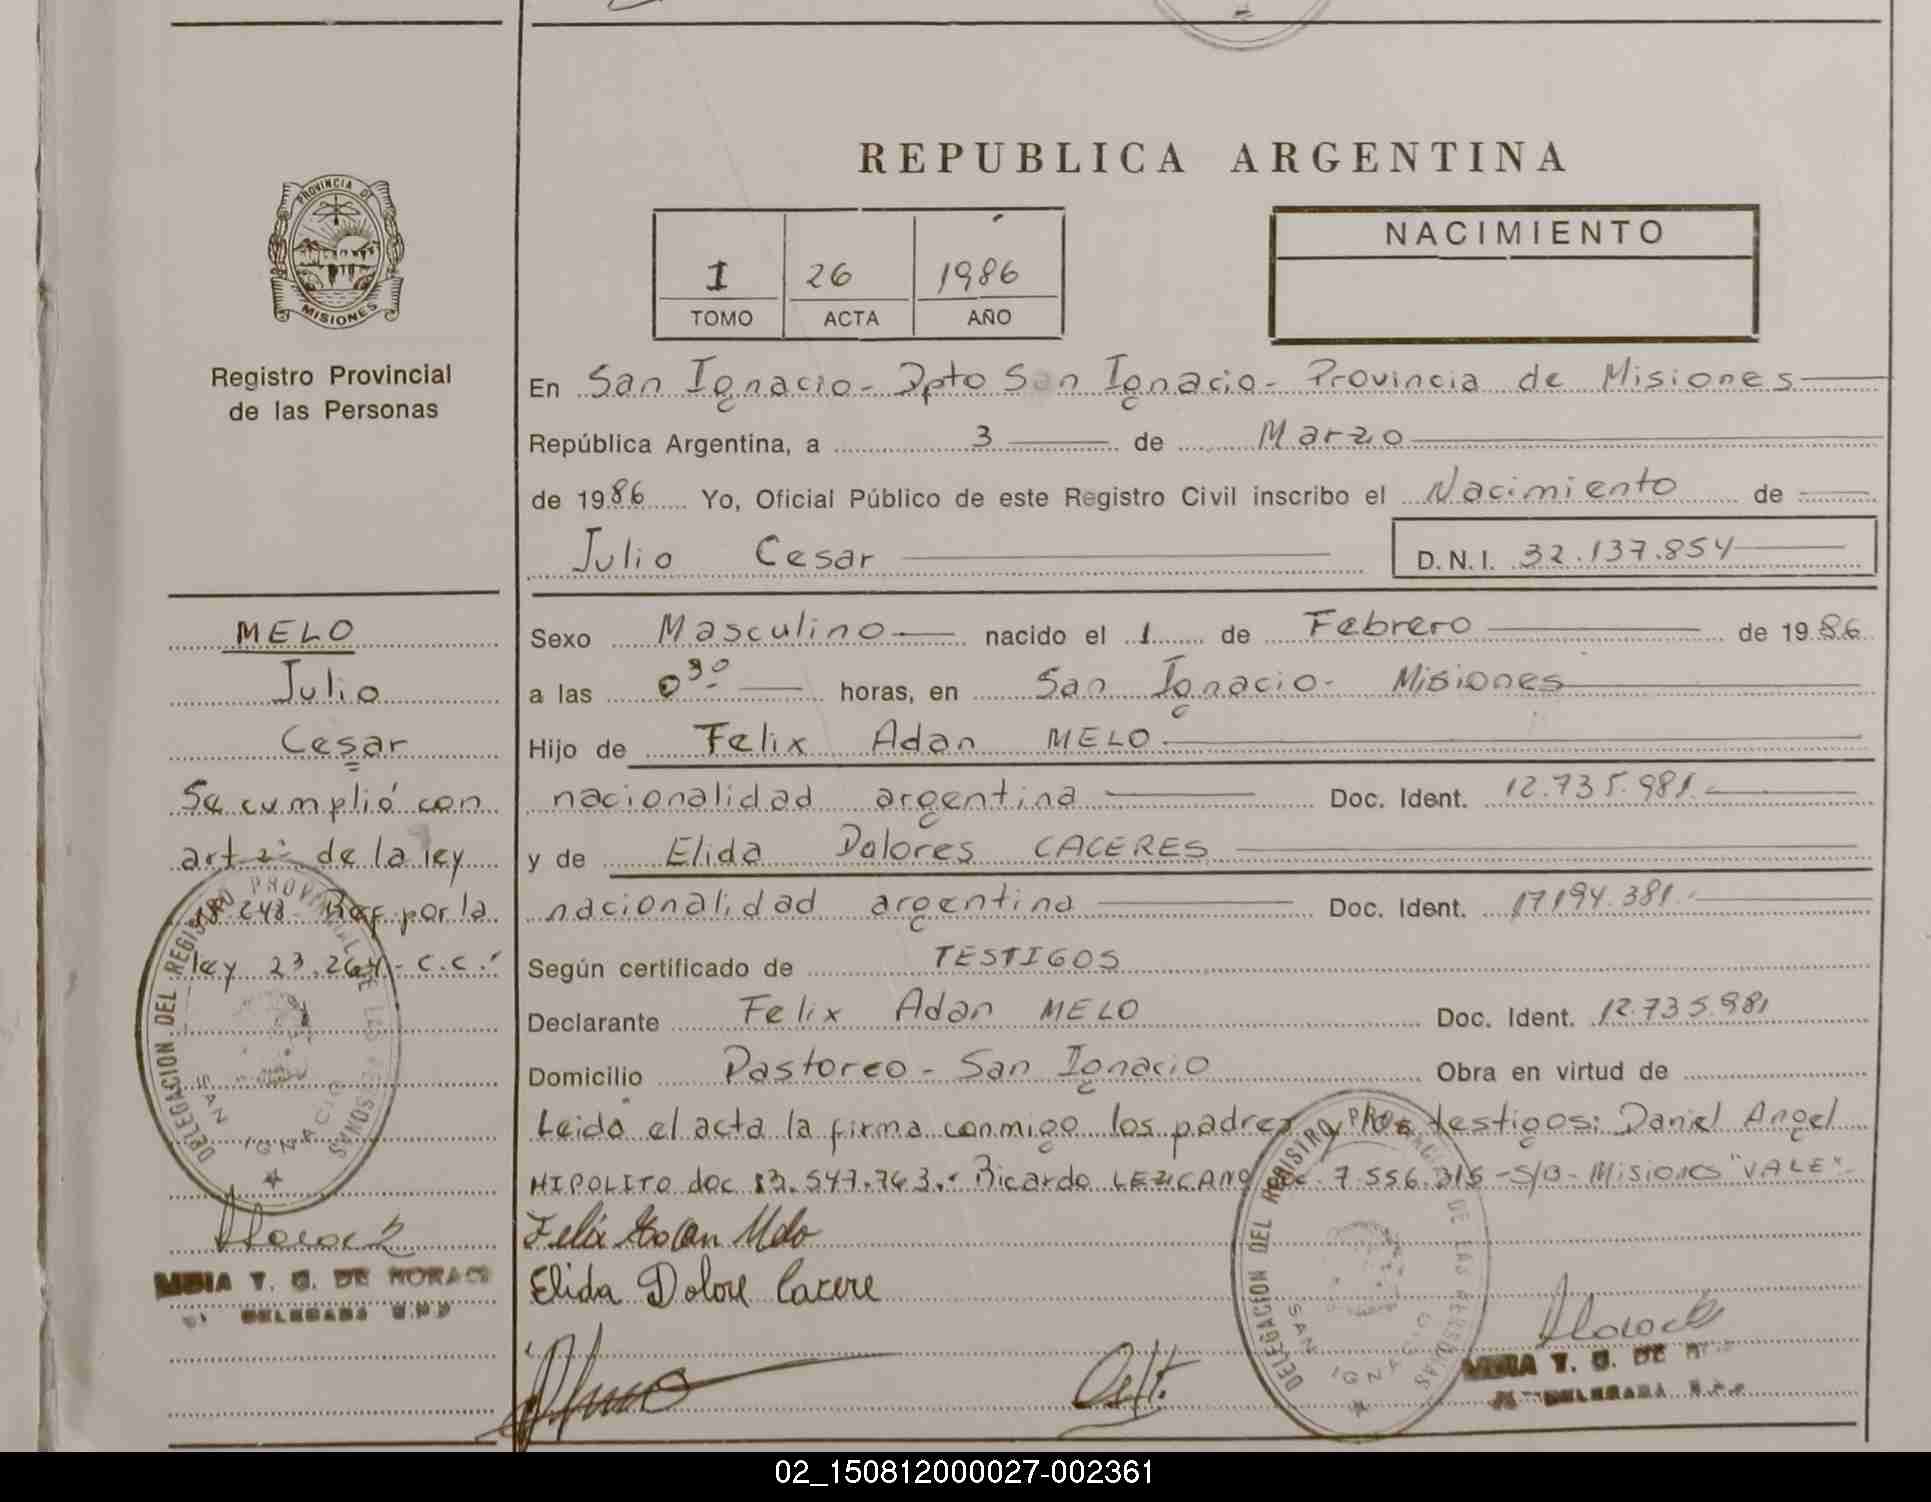 REPUBLICA ARGENTINA
PROVINCIA DE
MISIONES
Registro Provincial
de las Personas
I 26 1986
TOMO ACTA AÑO
NACIMIENTO
En San Ignacio- Dpto San Ignacio- Provincia de Misiones
República Argentina, a 3 de Marzo
de 1986 Yo, Oficial Público de este Registro Civil inscribo el Nacimiento de
Julio Cesar D.N.I. 32.137.854
MELO
Julio
Cesar
Se cumplió con
art 2º de la ley
18.248 por la
ley 23.264 - C.C.
Sexo Masculino nacido el 1 de Febrero de 1986
a las 0 30 horas, en San Ignacio- Misiones
Hijo de Felix Adan MELO
nacionalidad argentina Doc. Ident. 12.735.981
y de Elida Dolores CACERES
nacionalidad argentina Doc. Ident. 17194.381
Según certificado de TESTIGOS
Declarante Felix Adan MELO Doc. Ident. 12.735.981
Domicilio Pastoreo - San Ignacio Obra en virtud de
Leida el acta la firma conmigo los padres y los testigos: Daniel Angel
HIPOLITO doc 13.547.743.- Ricardo LEZCANO doc. 7.556.315 -S/D- Misiones "VALE"
Felix Adan Melo
Elida Dolore Cacere
DELEGACION DEL REGISTRO PROVINCIAL DE LAS PERSONAS
SAN IGNACIO
T. G. DE
DELEGADA
DELEGACION DEL REGISTRO PROVINCIAL DE LAS PERSONAS
SAN IGNACIO
T. G. DE
DELEGADA
02_150812000027-002361